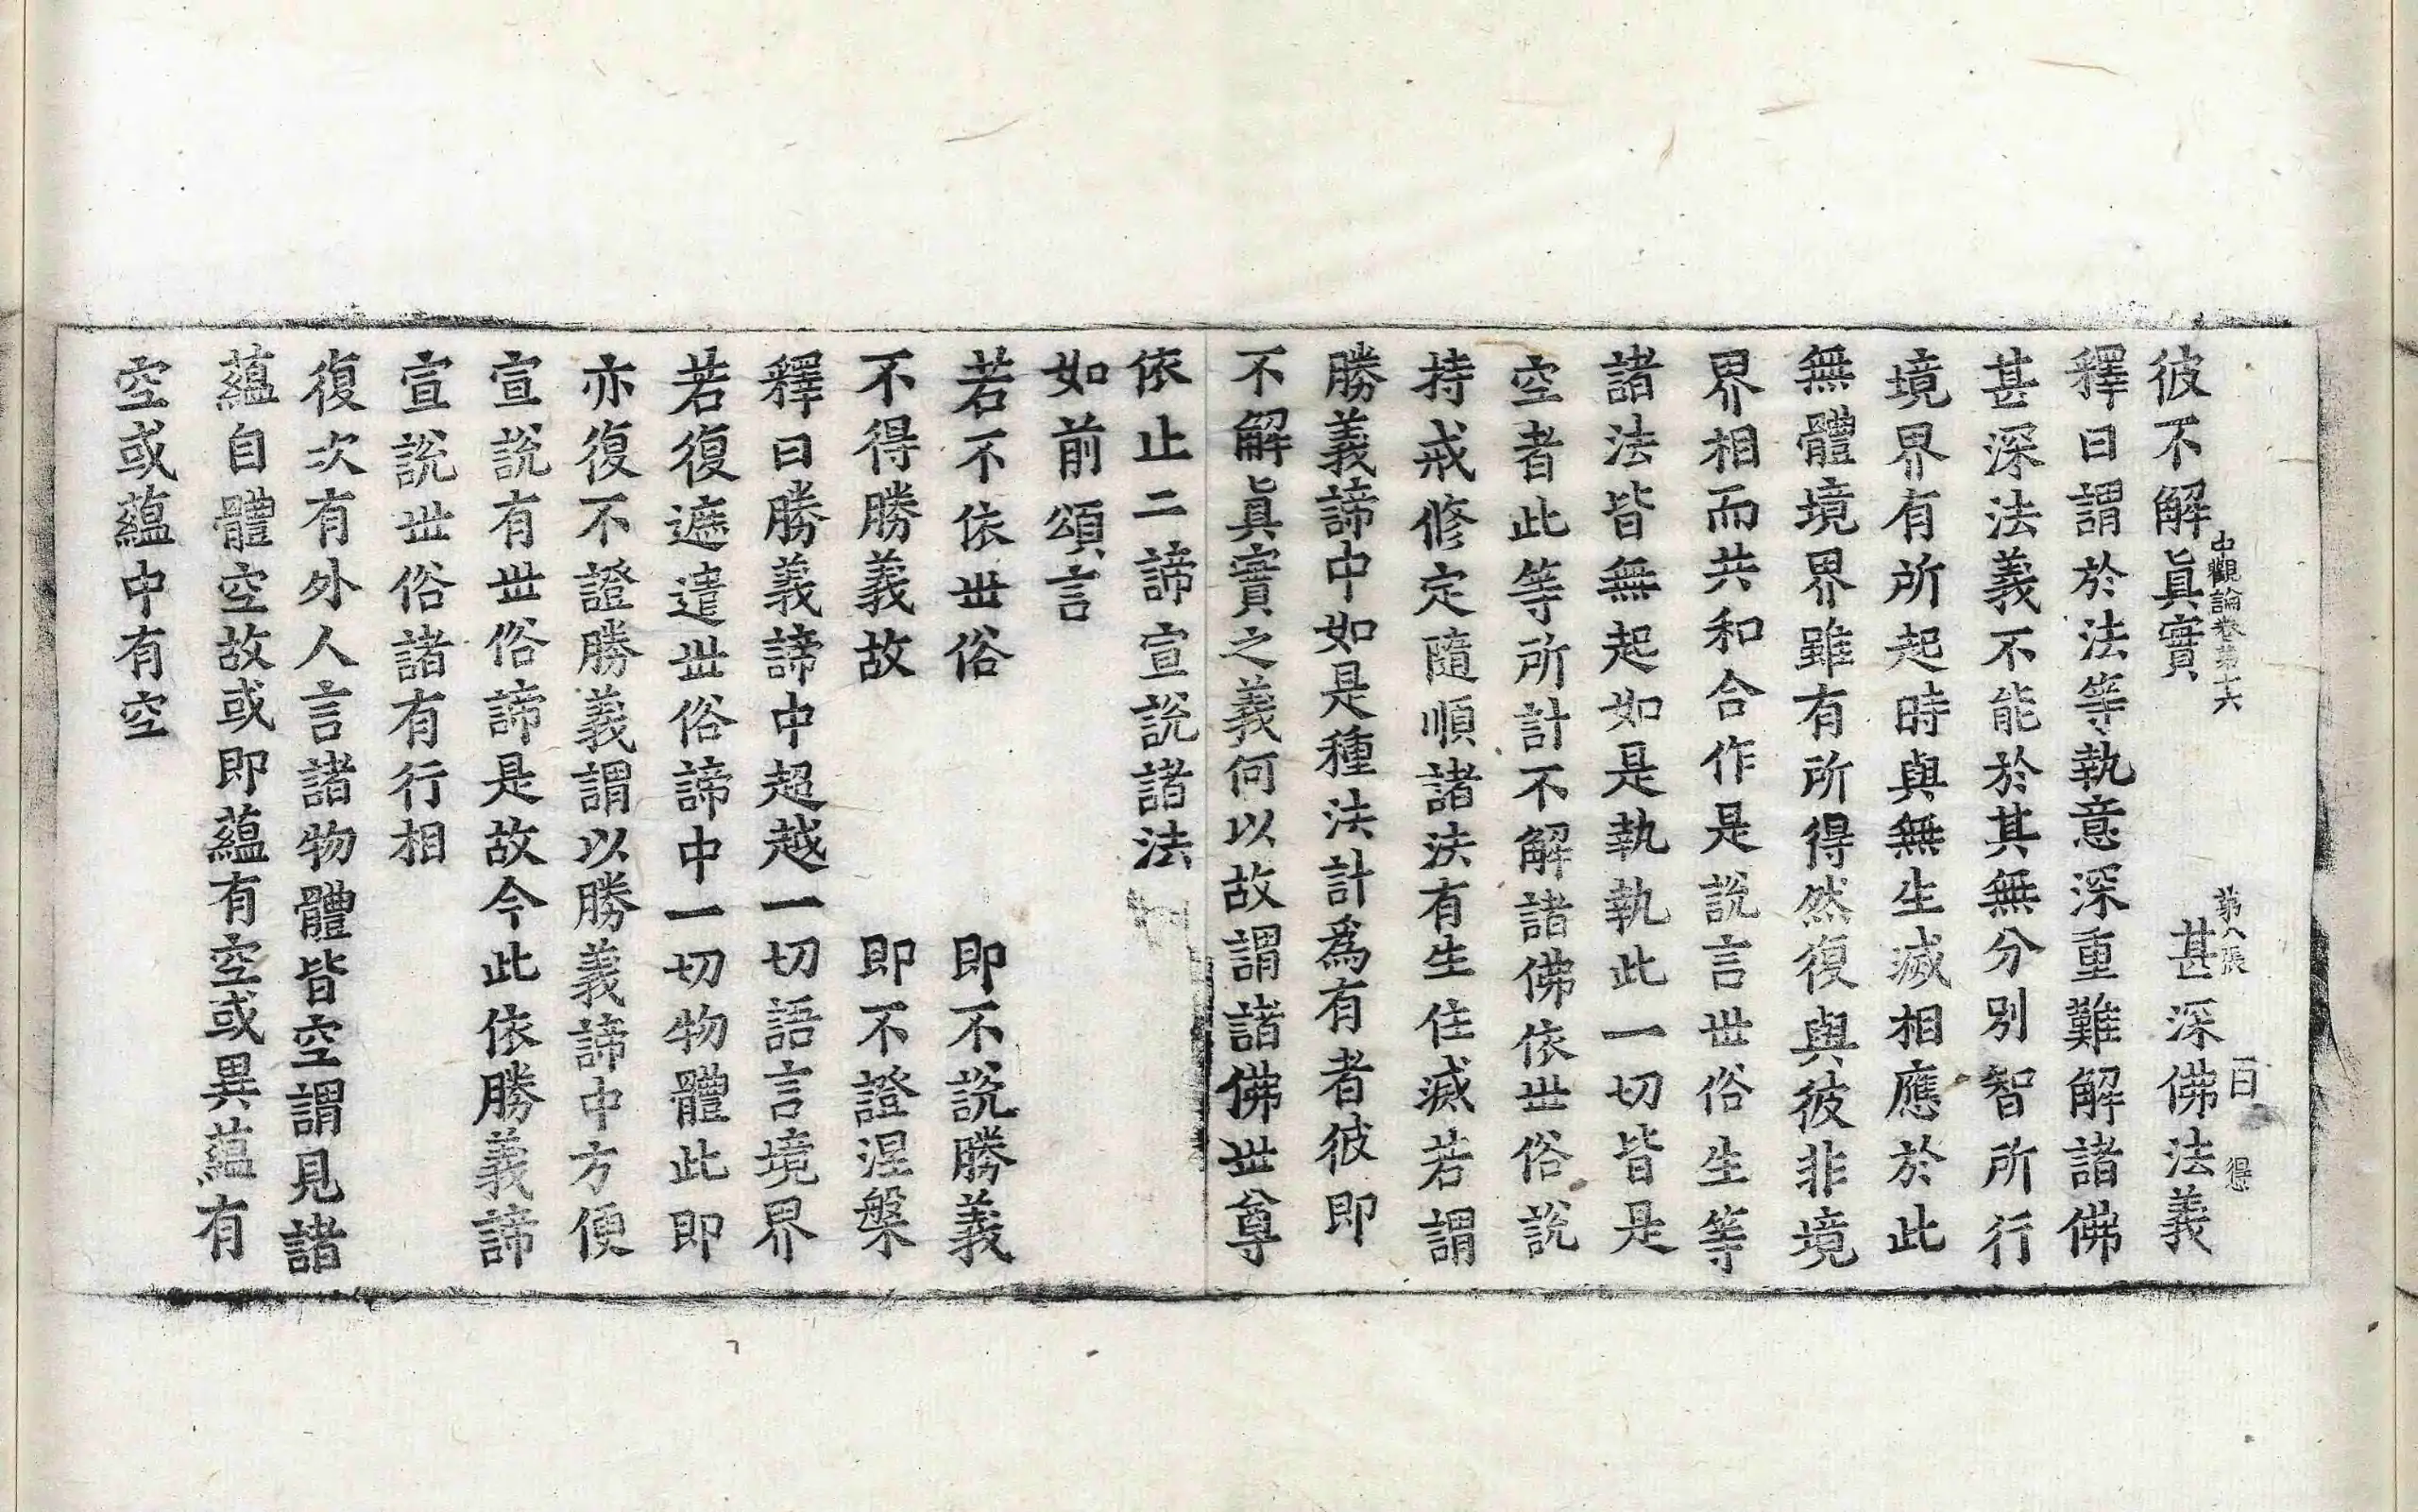 彼不解眞實　甚深佛法義
中觀論卷第十六　第八張　一百　得
釋曰謂於法等執意深重難解諸佛
甚深法義不能於其無分別智所行
境界有所起時與無生滅相應於此
無體境界雖有所得然復與彼非境
界相而共和合作是說言世俗生等
諸法皆無起如是執執此一切皆是
空者此等所計不解諸佛依世俗說
持戒修定隨順諸法有生住滅若謂
勝義諦中如是種法計爲有者彼即
不解眞實之義何以故謂諸佛世尊
依止二諦宣說諸法
如前頌言
若不依世俗　即不說勝義
不得勝義故　即不證涅槃
釋曰勝義諦中超越一切語言境界
若復遮遣世俗諦中一切物體此即
亦復不證勝義謂以勝義諦中方便
宣說有世俗諦是故今此依勝義諦
宣說世俗諸有行相
復次有外人言諸物體皆空謂見諸
蘊自體空故或即蘊有空或異蘊有
空或蘊中有空